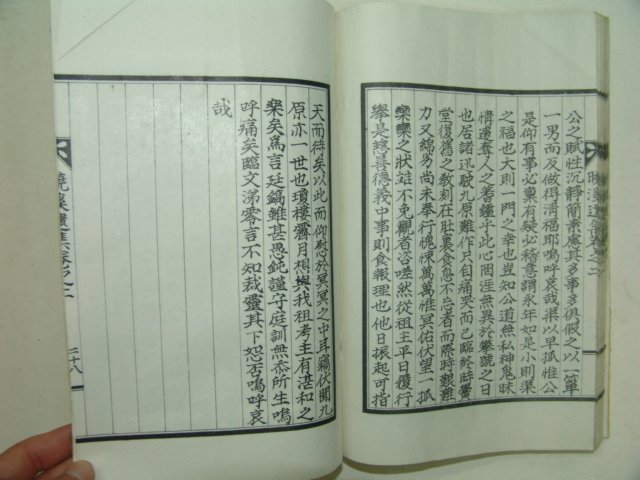 公之賦性沉靜簡素處其多事多俱假之以一簞
一男而反做得淸福耶嗚呼哀哉渠以早孤惟公
是仰有事必稟有疑必稽意謂永年如是小則渠
之福也大則一門之幸也豈知公道無私神鬼昧
情運奪人之耆鑑乎此心罔涯無異於攀號之日
也居諸迅駛九原難作只自痛哭而已臨終時營
堂復舊之敎刻在肚裏食息不忘者而際時艱難
力又綿劣尙未擧行愧悚萬萬惟冥佑伏望一孤
欒欒之狀誰不免觀者咨唑然從租主平日履行
擧是慈善德義中事則食報理也他日振起可指
天而待矣以此而仰慰於冥冥之中耳竊伏聞九
原亦一世也瓊樓霽月想與我祖考主有湛和之
樂矣焉言廷鎬雖甚愚鈍謹守庭訓無忝所生嗚
呼痛矣臨文涕零言不知裁靈其下怨否嗚呼哀
哉
曉溪遺集卷之二
二十八